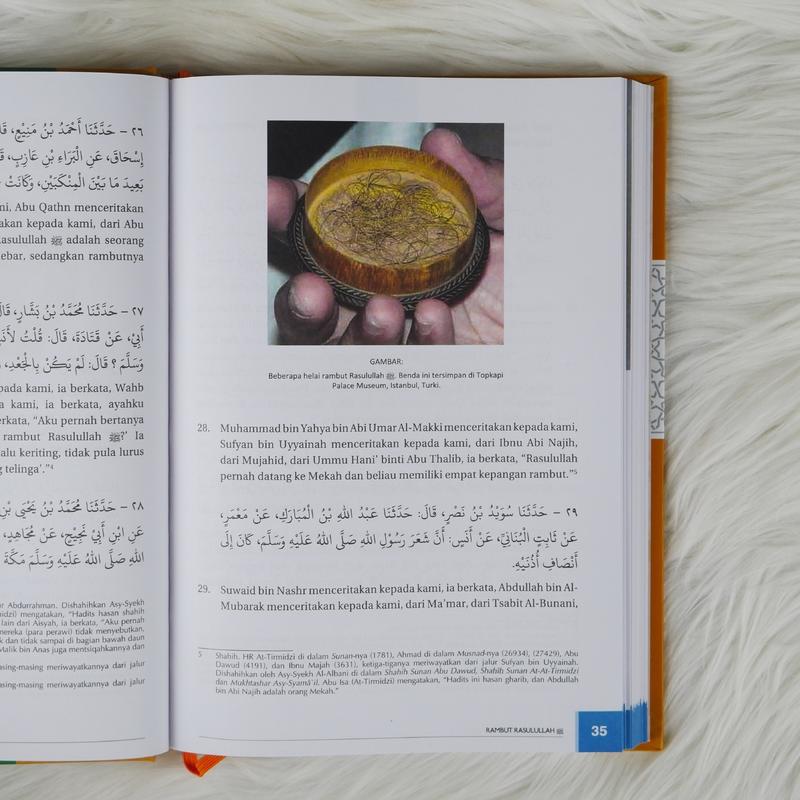 ٢٦ – حَدَّثَنَا أَحْمَدُ بْنُ مَنِيْعٍ،
إِسْحَاقَ، عَنِ الْبَرَاءِ بْنِ عَازِبٍ،
بَعِيدَ مَا بَيْنَ الْمَنْكِبَيْنِ، وَكَانَتْ
Abu Qathn menceritakan
kepada kami, dari Abu
Rasulullah ﷺ adalah seorang
sedangkan rambutnya
٢٧ – حَدَّثَنَا مُحَمَّدُ بْنُ بَشَّارٍ،
أَبِيْ، عَنْ قَتَادَةَ، قَالَ: قُلْتُ
وَسَلَّمَ ؟ قَالَ: لَمْ يَكُنْ بِالْجَعْدِ،
kami, ia berkata, Wahb
kami, ia berkata, ayahku
"Aku pernah bertanya
rambut Rasulullah ﷺ?' Ia
keriting, tidak pula lurus
telinga'."⁴
٢٨ – حَدَّثَنَا مُحَمَّدُ بْنُ يَحْيَى
عَنِ ابْنِ أَبِيْ نَجِيْحٍ، عَنْ مُجَاهِدٍ،
اللهِ صَلَّى اللهُ عَلَيْهِ وَسَلَّمَ مَكَّةَ
Abdurrahman. Dishahihkan Asy-Syekh
mengatakan, "Hadits hasan shahih
lain dari Aisyah, ia berkata, "Aku pernah
(para perawi) tidak menyebutkan,
dan tidak sampai di bagian bawah daun
Malik bin Anas juga mentsiqahkannya dan
meriwayatkannya dari jalur
meriwayatkannya dari jalur
GAMBAR:
Beberapa helai rambut Rasulullah ﷺ. Benda ini tersimpan di Topkapi
Palace Museum, Istanbul, Turki.
28. Muhammad bin Yahya bin Abi Umar Al-Makki menceritakan kepada kami,
Sufyan bin Uyyainah menceritakan kepada kami, dari Ibnu Abi Najih,
dari Mujahid, dari Ummu Hani' binti Abu Thalib, ia berkata, "Rasulullah
pernah datang ke Mekah dan beliau memiliki empat kepangan rambut."⁵
٢٩ – حَدَّثَنَا سُوَيْدُ بْنُ نَصْرٍ، قَالَ: حَدَّثَنَا عَبْدُ اللهِ بْنُ الْمُبَارَكِ، عَنْ مَعْمَرٍ،
عَنْ ثَابِتٍ الْبُنَانِيِّ، عَنْ أَنَسٍ: أَنَّ شَعَرَ رَسُوْلِ اللهِ صَلَّى اللهُ عَلَيْهِ وَسَلَّمَ، كَانَ إِلَى
أَنْصَافِ أُذُنَيْهِ.
29. Suwaid bin Nashr menceritakan kepada kami, ia berkata, Abdullah bin Al-
Mubarak menceritakan kepada kami, dari Ma'mar, dari Tsabit Al-Bunani,
5 Shahih. HR At-Tirmidzi di dalam Sunan-nya (1781), Ahmad di dalam Musnad-nya (26934), (27429), Abu
Dawud (4191), dan Ibnu Majah (3631), ketiga-tiganya meriwayatkan dari jalur Sufyan bin Uyyainah.
Dishahihkan oleh Asy-Syekh Al-Albani di dalam Shahih Sunan Abu Dawud, Shahih Sunan At-At-Tirmidzi
dan Mukhtashar Asy-Syamâ'il. Abu Isa (At-Tirmidzi) mengatakan, "Hadits ini hasan gharib, dan Abdullah
bin Abi Najih adalah orang Mekah."
RAMBUT RASULULLAH ﷺ 35